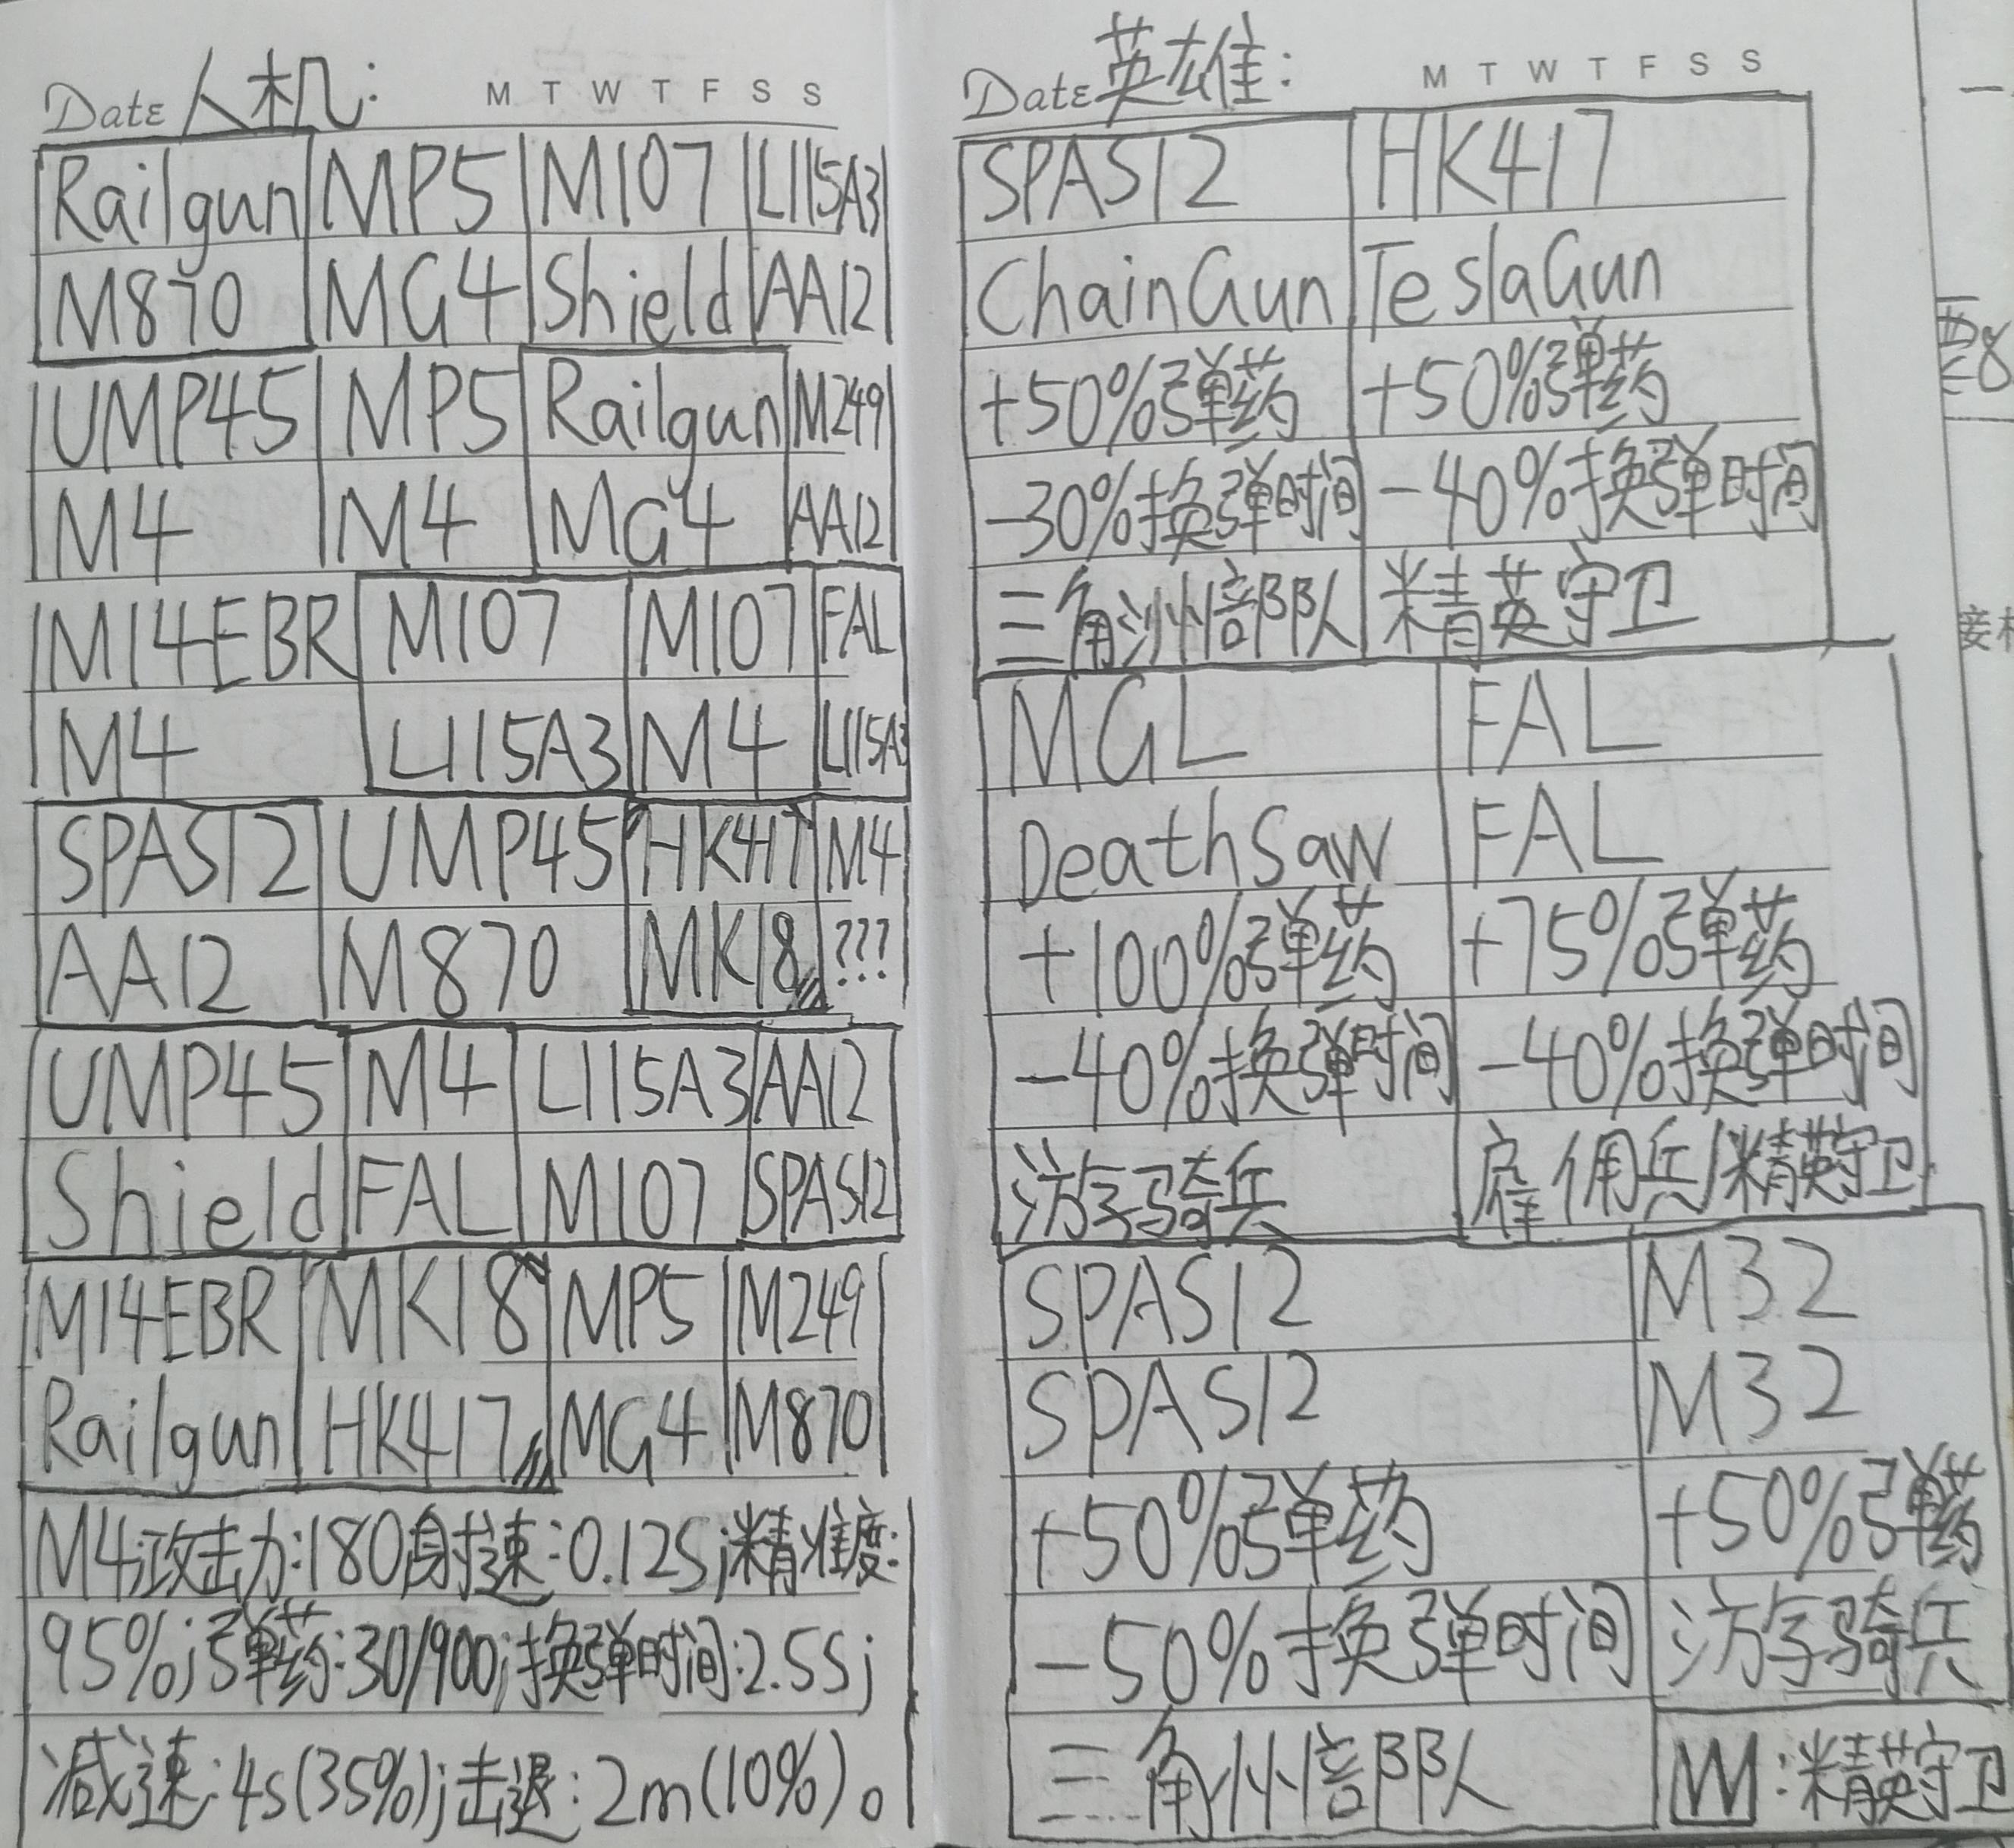 Date 人机: M T W T F S S
Railgun MP5 M107 L115A3
M870 MG4 Shield AA12
UMP45 MP5 Railgun M249
M4 M4 MG4 AA12
M14EBR M107 M107 FAL
M4 L115A3 M4 L115A3
SPAS12 UMP45 HK417 M4
AA12 M870 MK18 ???
UMP45 M4 L115A3 AA12
Shield FAL M107 SPAS12
M14EBR MK18 MP5 M249
Railgun HK417 MG4 M870
M4攻击力:180射速:0.12s;精准度:
95%;弹药:30/900;换弹时间:2.5s;
减速:4s(35%);击退:2m(10%)。
Date 英雄: M T W T F S S
SPAS12 HK417
ChainGun TeslaGun
+50%弹药 +50%弹药
-30%换弹时间 -40%换弹时间
三角洲部队 精英守卫
MGL FAL
DeathSaw FAL
+100%弹药 +75%弹药
-40%换弹时间 -40%换弹时间
游骑兵 雇佣兵/精英守卫
SPAS12 M32
SPAS12 M32
+50%弹药 +50%弹药
-50%换弹时间 游骑兵
三角州部队 :精英守卫